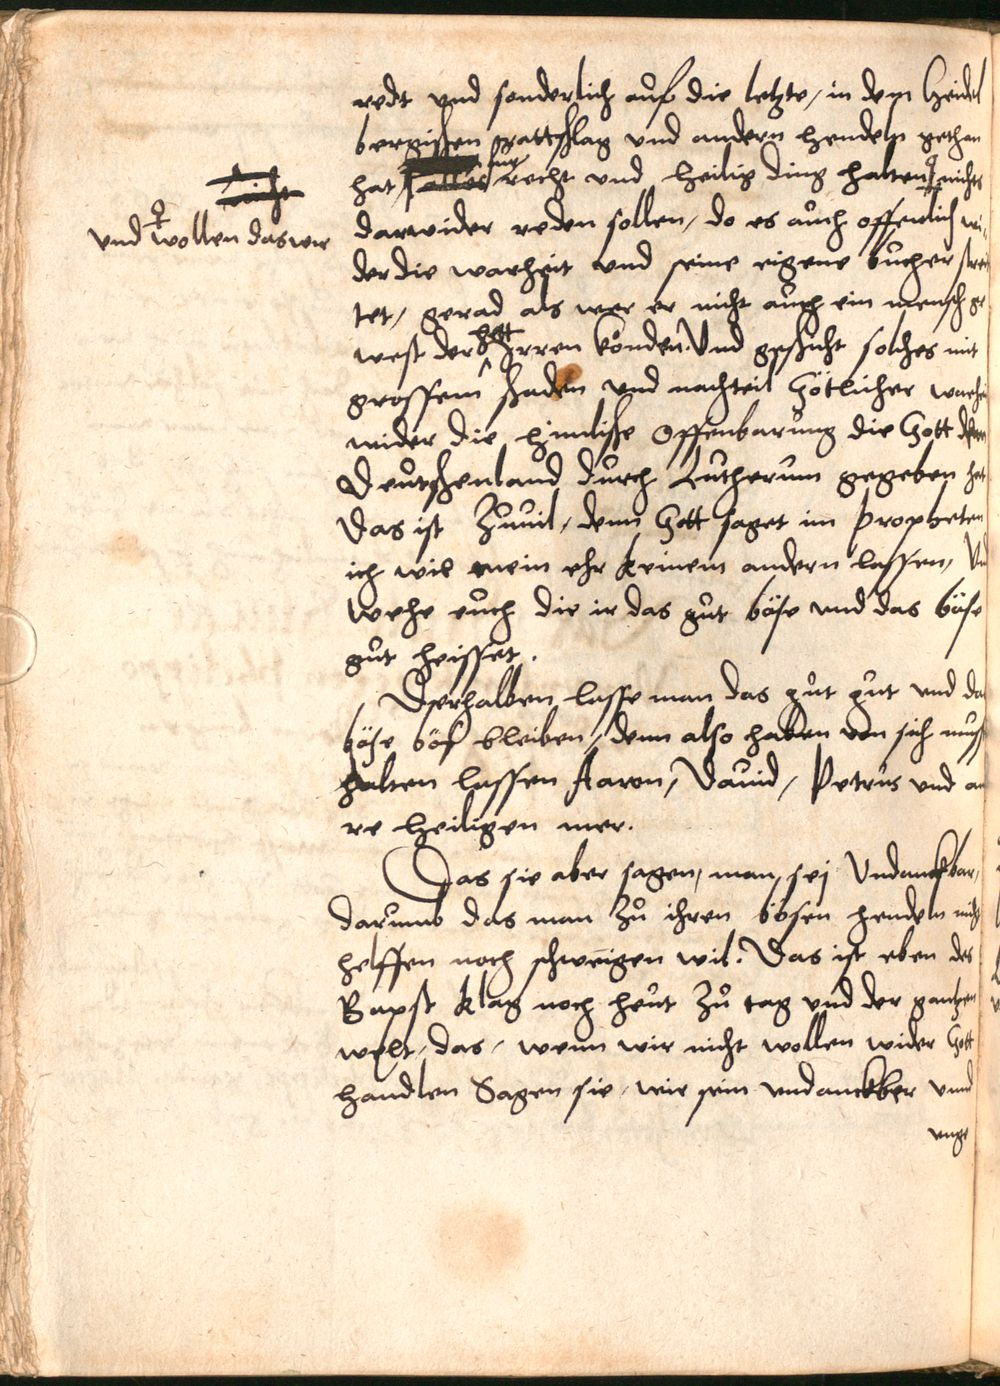 redt vnd sonderlich auf die letzte, in dem Heidel
bergischen rattschlag vnd andern hendeln gethan
hat, alles recht vnd heilig ding halten nichts
nicht
vnd wollen das wir
darwider reden sollen, do es auch offentlich wi,
der die warheit vnd seine eigene bucher strei
tet, gerad als wer er nicht auch ein mensch ge
west der hett Irren könden Vnd geschicht solches mit
grossem schaden vnd nachteil Götlicher warhei
wider die himlische Offenbarung die Gott dem
Deutschenland durch Lutherum gegeben hat
Das ist Zuuil, denn Gott saget im Propheten
ich wil mein ehr keinem andern lassen, Vnd
Wehe euch die ir das gut böse vnd das böse
gut heisset.
Derhalben lasse man das gut gut vnd das
böse böß bleiben, denn also haben von sich muss
halten lassen Aaron, Dauid, Petrus vnd an
re heiligen mer.
Das sie aber sagen, man sej Vndanckbar,
darumb das man zu ihren bösen hendeln nicht
helffen noch schweigen wil. Das ist eben des
Bapst klag noch heut zu tag vnd der gantzen
welt, das, wenn wir nicht wollen wider Gott
handlen Sagen sie, wir sein vndanckber vnnd
vnge